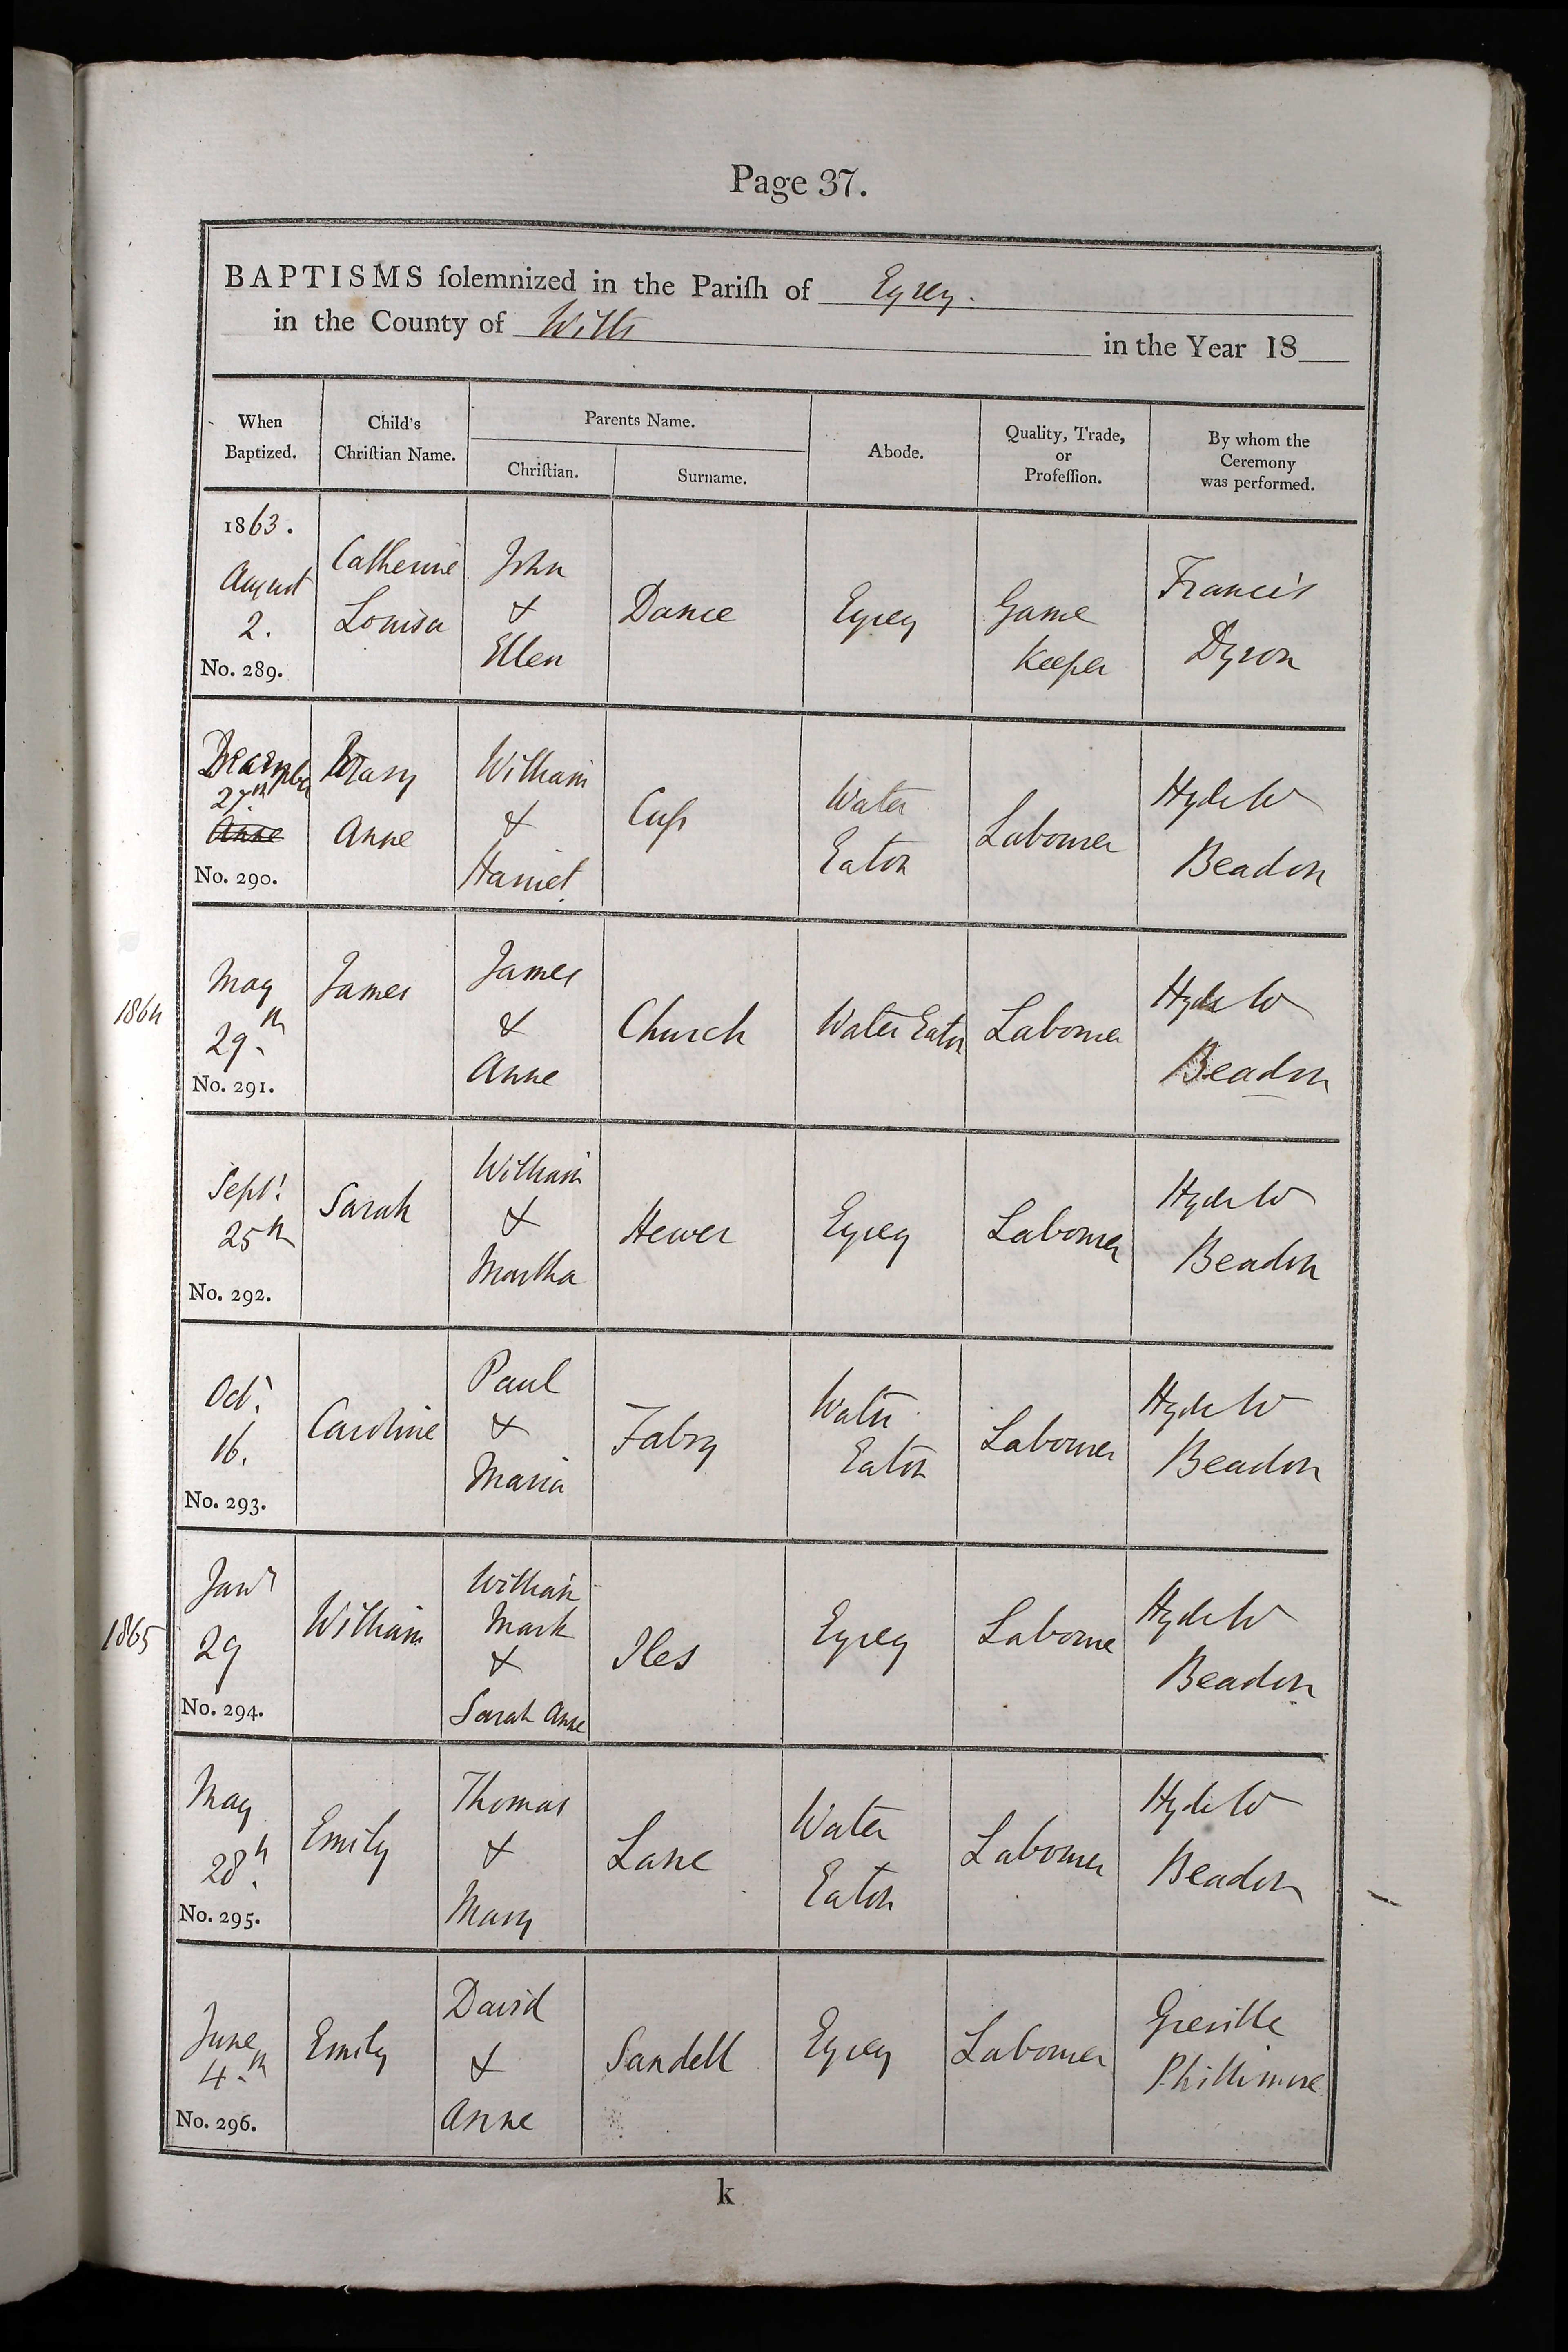 Page 37.
BAPTISMS ſolemnized in the Pariſh of Eysey.
in the County of Wilts in the Year 18
When Baptized.
Child's Chriſtian Name.
Parents Name.
Chriſtian.
Surname.
Abode.
Quality, Trade, or Profeſſion.
By whom the Ceremony was performed.
1863.
August
2.
No. 289.
Catherine
Louisa
John
&
Ellen
Dance
Eysey
Game
Keeper
Francis
Dyson
December
27th
Anne
No. 290.
Mary
Anne
William
&
Harriet
Cuſs
Water
Eaton
Labourer
Hyde W
Beadon
1864
May
29th
No. 291.
James
James
&
Anne
Church
Water Eaton
Labourer
Hyde W
Beadon
Sept.
25th
No. 292.
Sarah
William
&
Martha
Hewer
Eysey
Labourer
Hyde W
Beadon
Oct.
16.
No. 293.
Caroline
Paul
&
Maria
Fabry
Water
Eaton
Labourer
Hyde W
Beadon
1865
Janr
29
No. 294.
William
William
Mark
&
Sarah Anne
Iles
Eysey
Laboure
Hyde W
Beadon
May
28th
No. 295.
Emily
Thomas
&
Mary
Lane
Water
Eaton
Labourer
Hyde W
Beadon
June
4th
No. 296.
Emily
David
&
Anne
Sandell
Eysey
Labourer
Greville
Phillimore
k